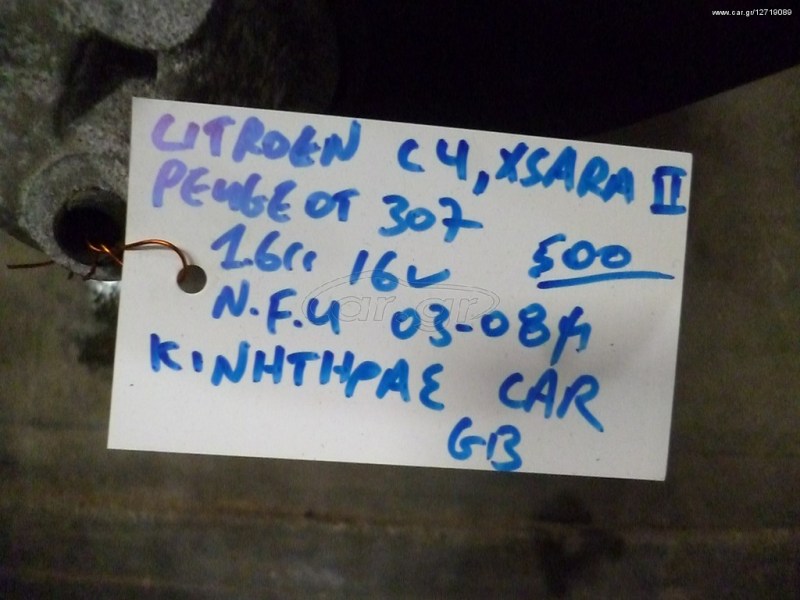 www.car.gr/12719089
CITROEN C4, XSARA II
PEUGEOT 307
1.6cc 16v 500
N.F.U 03-08
car.gr
ΚΙΝΗΤΗΡΑΣ CAR
GB